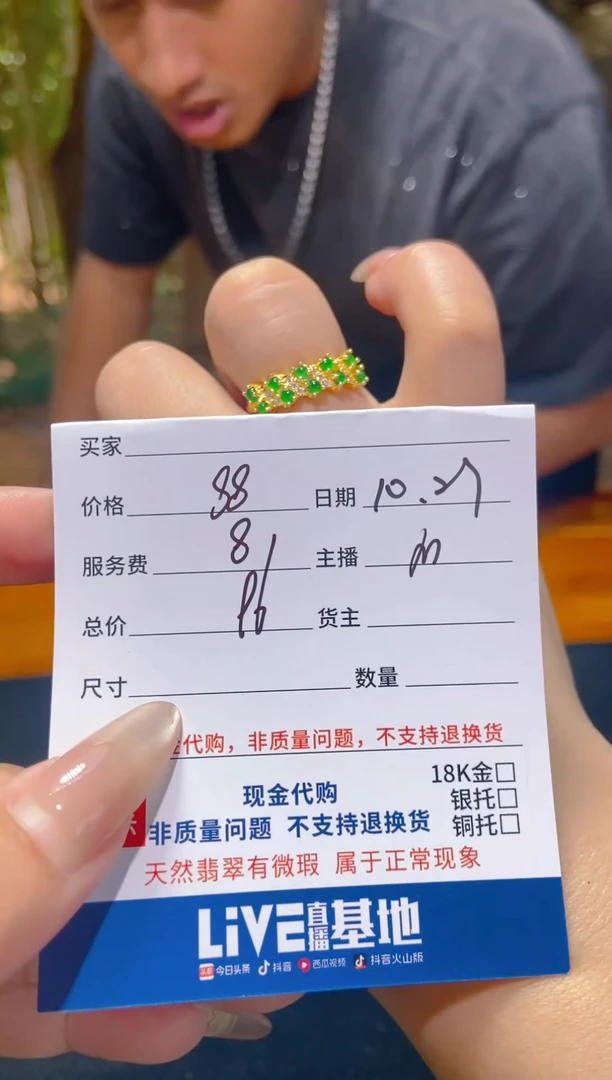 买家
价格 88 日期 10.27
服务费 8 主播
总价 96 货主
尺寸 数量
金代购，非质量问题，不支持退换货
18K金□
现金代购
银托□
非质量问题 不支持退换货
铜托□
天然翡翠有微瑕 属于正常现象
LiVE直播基地
今日头条 抖音 西瓜视频 抖音火山版